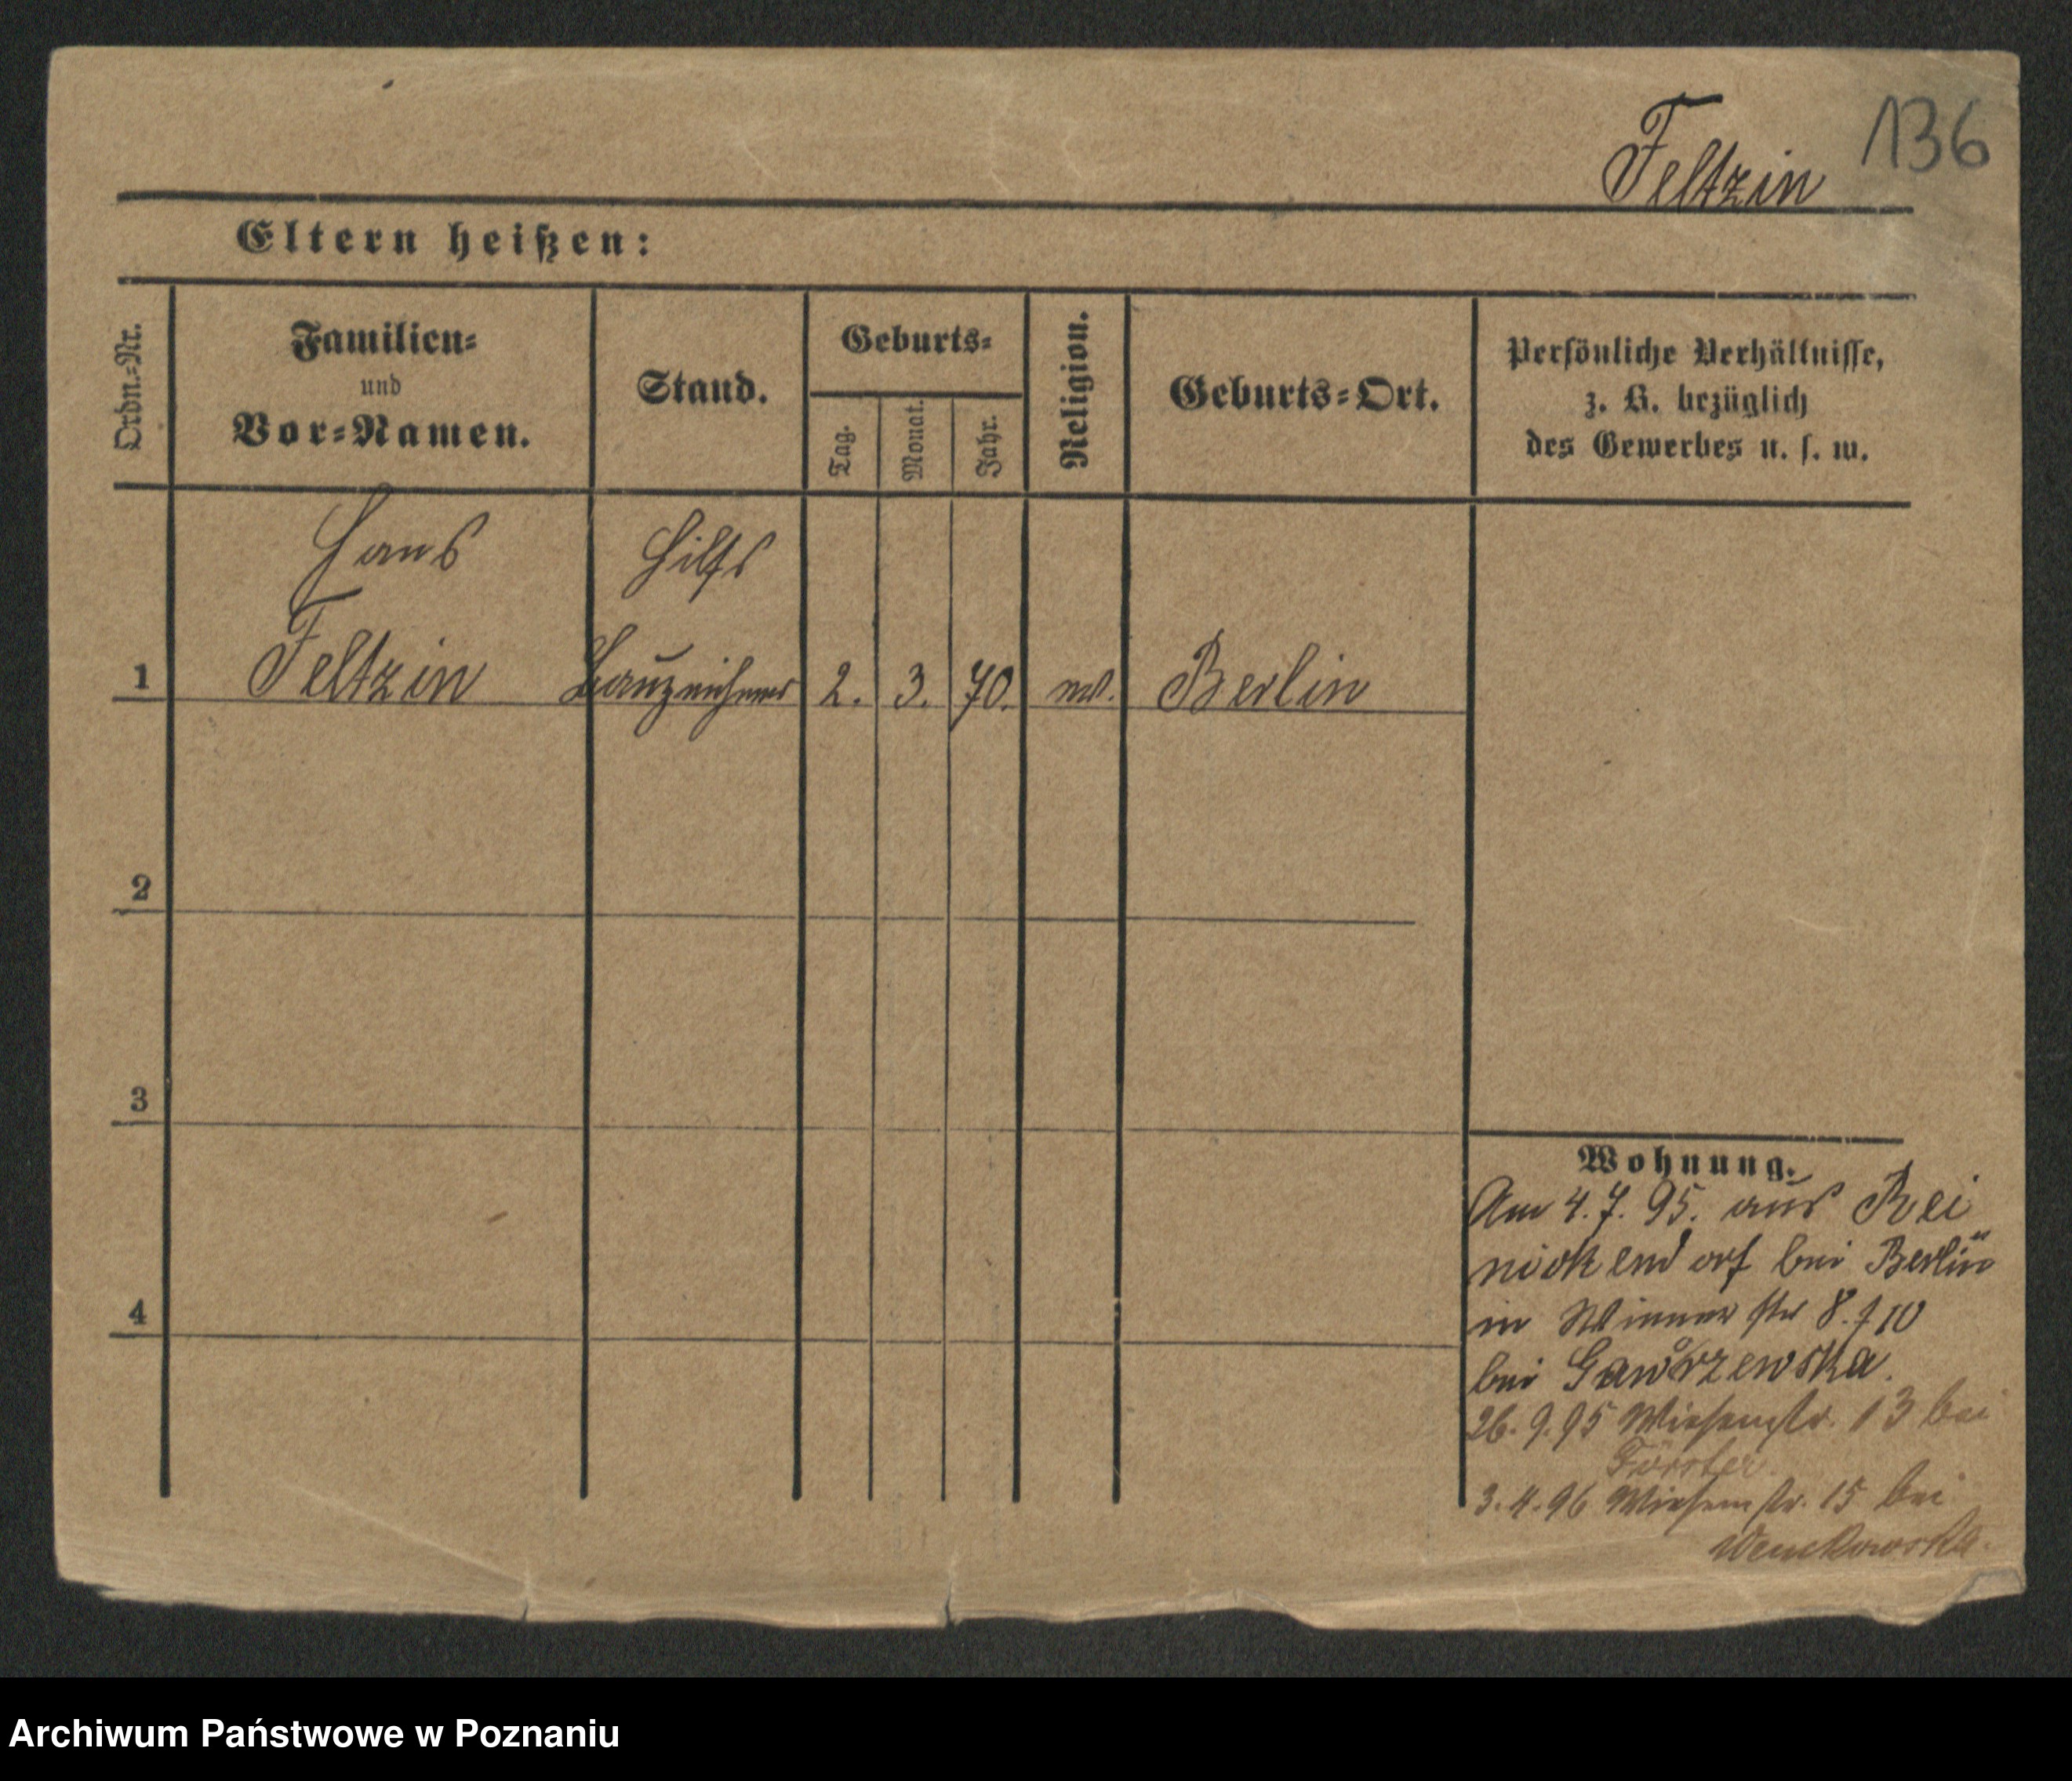 136
Feltzin
Eltern heißen:
Ordn.-Nr.
Familien-
und
Vor-Namen.
Stand.
Geburts-
Tag.
Monat.
Jahr.
Religion.
Geburts-Ort.
Persönliche Verhältnisse,
z. B. bezüglich
des Gewerbes u. s. w.
Hans
Hilfs
1 Feltzin Bauzeichner 2. 3. 70. ev. Berlin
2
3
4
Wohnung.
Am 4.7.95. aus Rei
nickendorf bei Berlin
in 8.
bei
26.9.95 Wiesenstr. 13 bei
Förster
3.4.96 Wiesenstr. 15 bei
Archiwum Państwowe w Poznaniu